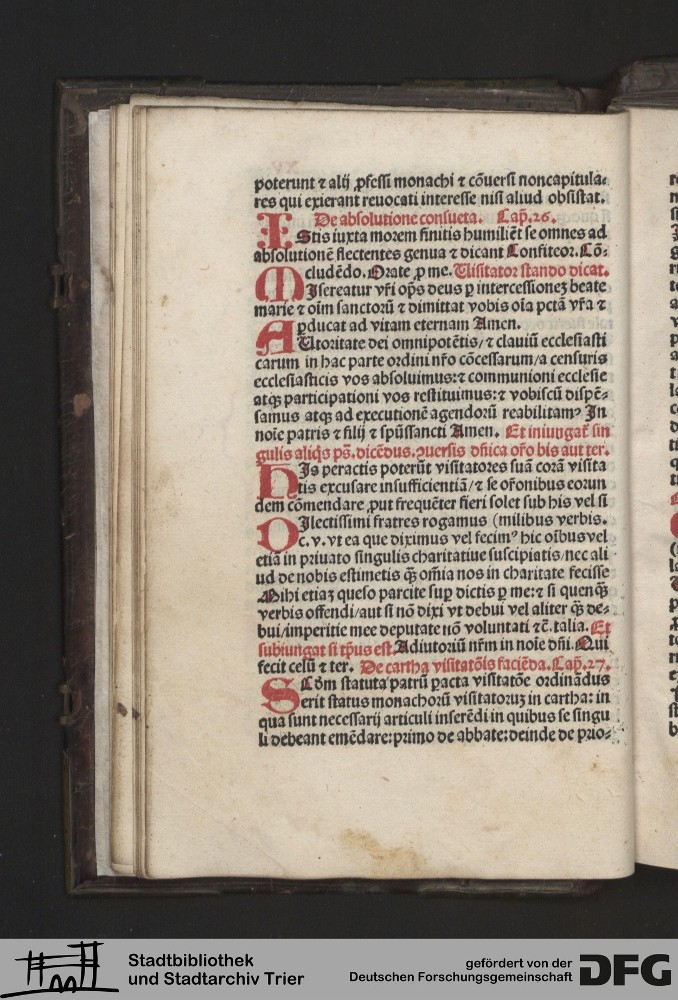 poterunt ⁊ alij ꝓfessi monachi ⁊ cõuersi noncapitula⸗
res qui exierant reuocati interesse nisi aliud obsistat.
De absolutione consueta. Cap̃.26.
IStis iuxta morem finitis humiliẽt se omnes ad
absolutionẽ flectentes genua ⁊ dicant Confiteor. Cõ⸗
cludẽdo. Orate ꝓ me. Uisitator stando dicat.
MIsereatur vr̃i op̃s deus ꝑ intercessioneꝫ beate
marie ⁊ oĩm sanctorũ ⁊ dimittat vobis oĩa pctã vr̃a ⁊
ꝑducat ad vitam eternam Amen.
AUtoritate dei omnipotẽtis/ ⁊ clauiũ ecclesiasti
carum in hac parte ordini nr̃o cõcessarum/a censuris
ecclesiasticis vos absoluimus:⁊ communioni ecclesie
atqꝫ participationi vos restituimus:⁊ vobiscũ dispẽ⸗
samus atqꝫ ad executionẽ agendorũ reabilitamꝰ In
noĩe patris ⁊ filij ⁊ sp̃ussancti Amen. Et iniungat̃ sin
gulis aliq̃s pš. dicẽdus. ꝯuersis dñica or̃o bis aut ter.
HIs peractis poterũt visitatores suã corã visita
tis excusare insufficientiã/ ⁊ se or̃onibus eorun
dem cõmendare ꝓut frequẽter fieri solet sub his vel si
DIlectissimi fratres rogamus (milibus verbis.
c. v. vt ea que diximus vel fecimꝰ hic oĩbus vel
etiã in priuato singulis charitatiue suscipiatis/nec ali
ud de nobis estimetis q̃ꝫ om̃ia nos in charitate fecisse
Mihi etiaꝫ queso parcite suꝑ dictis ꝑ me:⁊ si quenq̃ꝫ
verbis offendi/aut si nõ dixi vt debui vel aliter q̃ꝫ de⸗
bui/imperitie mee deputate nõ voluntati ⁊c̃. talia. Et
subiungat si tp̃us est. Adiutoriũ nr̃m in noĩe dñi. Qui
fecit celũ ⁊ ter. De cartha visitatõis faciẽda. Cap̃.27.
SCd̃m statuta patrũ ꝑacta visitatõe ordinãdus
erit status monachorũ visitatoruꝫ in cartha: in
qua sunt necessarij articuli inserẽdi in quibus se singu
li debeant emẽdare:primo de abbate:deinde de prio⸗
Stadtbibliothek
und Stadtarchiv Trier
gefördert von der
Deutschen Forschungsgemeinschaft
DFG